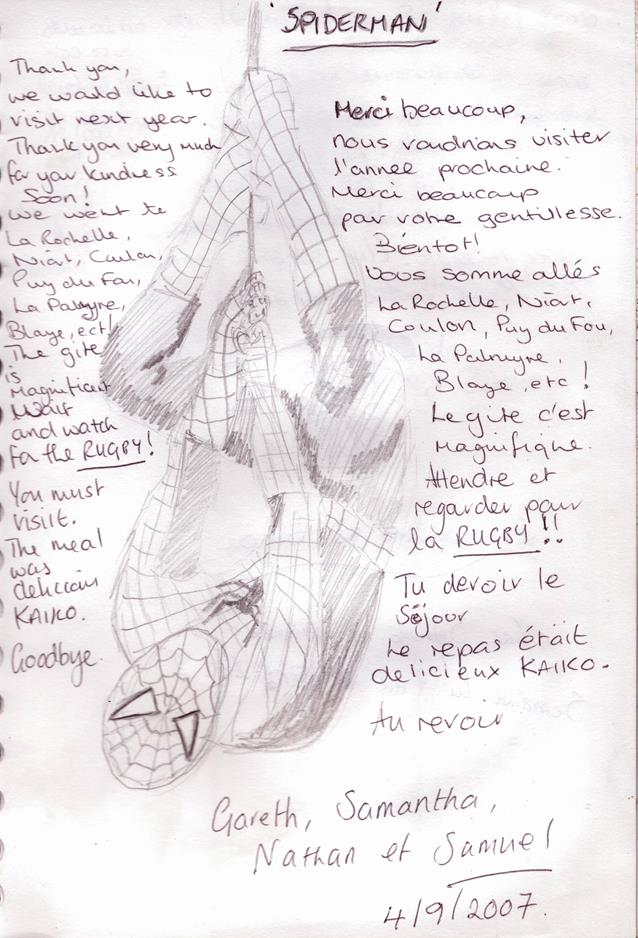 'SPIDERMAN'
Thank you,
we would like to
visit next year.
Thank you very much
for your kindness
Soon!
We went to
La Rochelle,
Niort, Coulon,
Puy du Fou,
La Palmyre,
Blaye, ect!
The gite
is
Magnificent
Wait
and watch
for the RUGBY!
You must
visit.
The meal
was
delicious
KAIKO.
Goodbye.
Merci beaucoup,
nous voudrions visiter
l'annee prochaine.
Merci beaucoup
par votre gentillesse.
Bientot!
Vous somme allés
La Rochelle, Niort,
Coulon, Puy du Fou,
La Palmyre,
Blaye, etc!
Le gite c'est
magnifique.
Attendre et
regarder pour
la RUGBY!!
Tu devoir le
Séjour
Le repas était
delicieux KAIKO.
Au revoir
Gareth, Samantha,
Nathan et Samuel
4/9/2007.